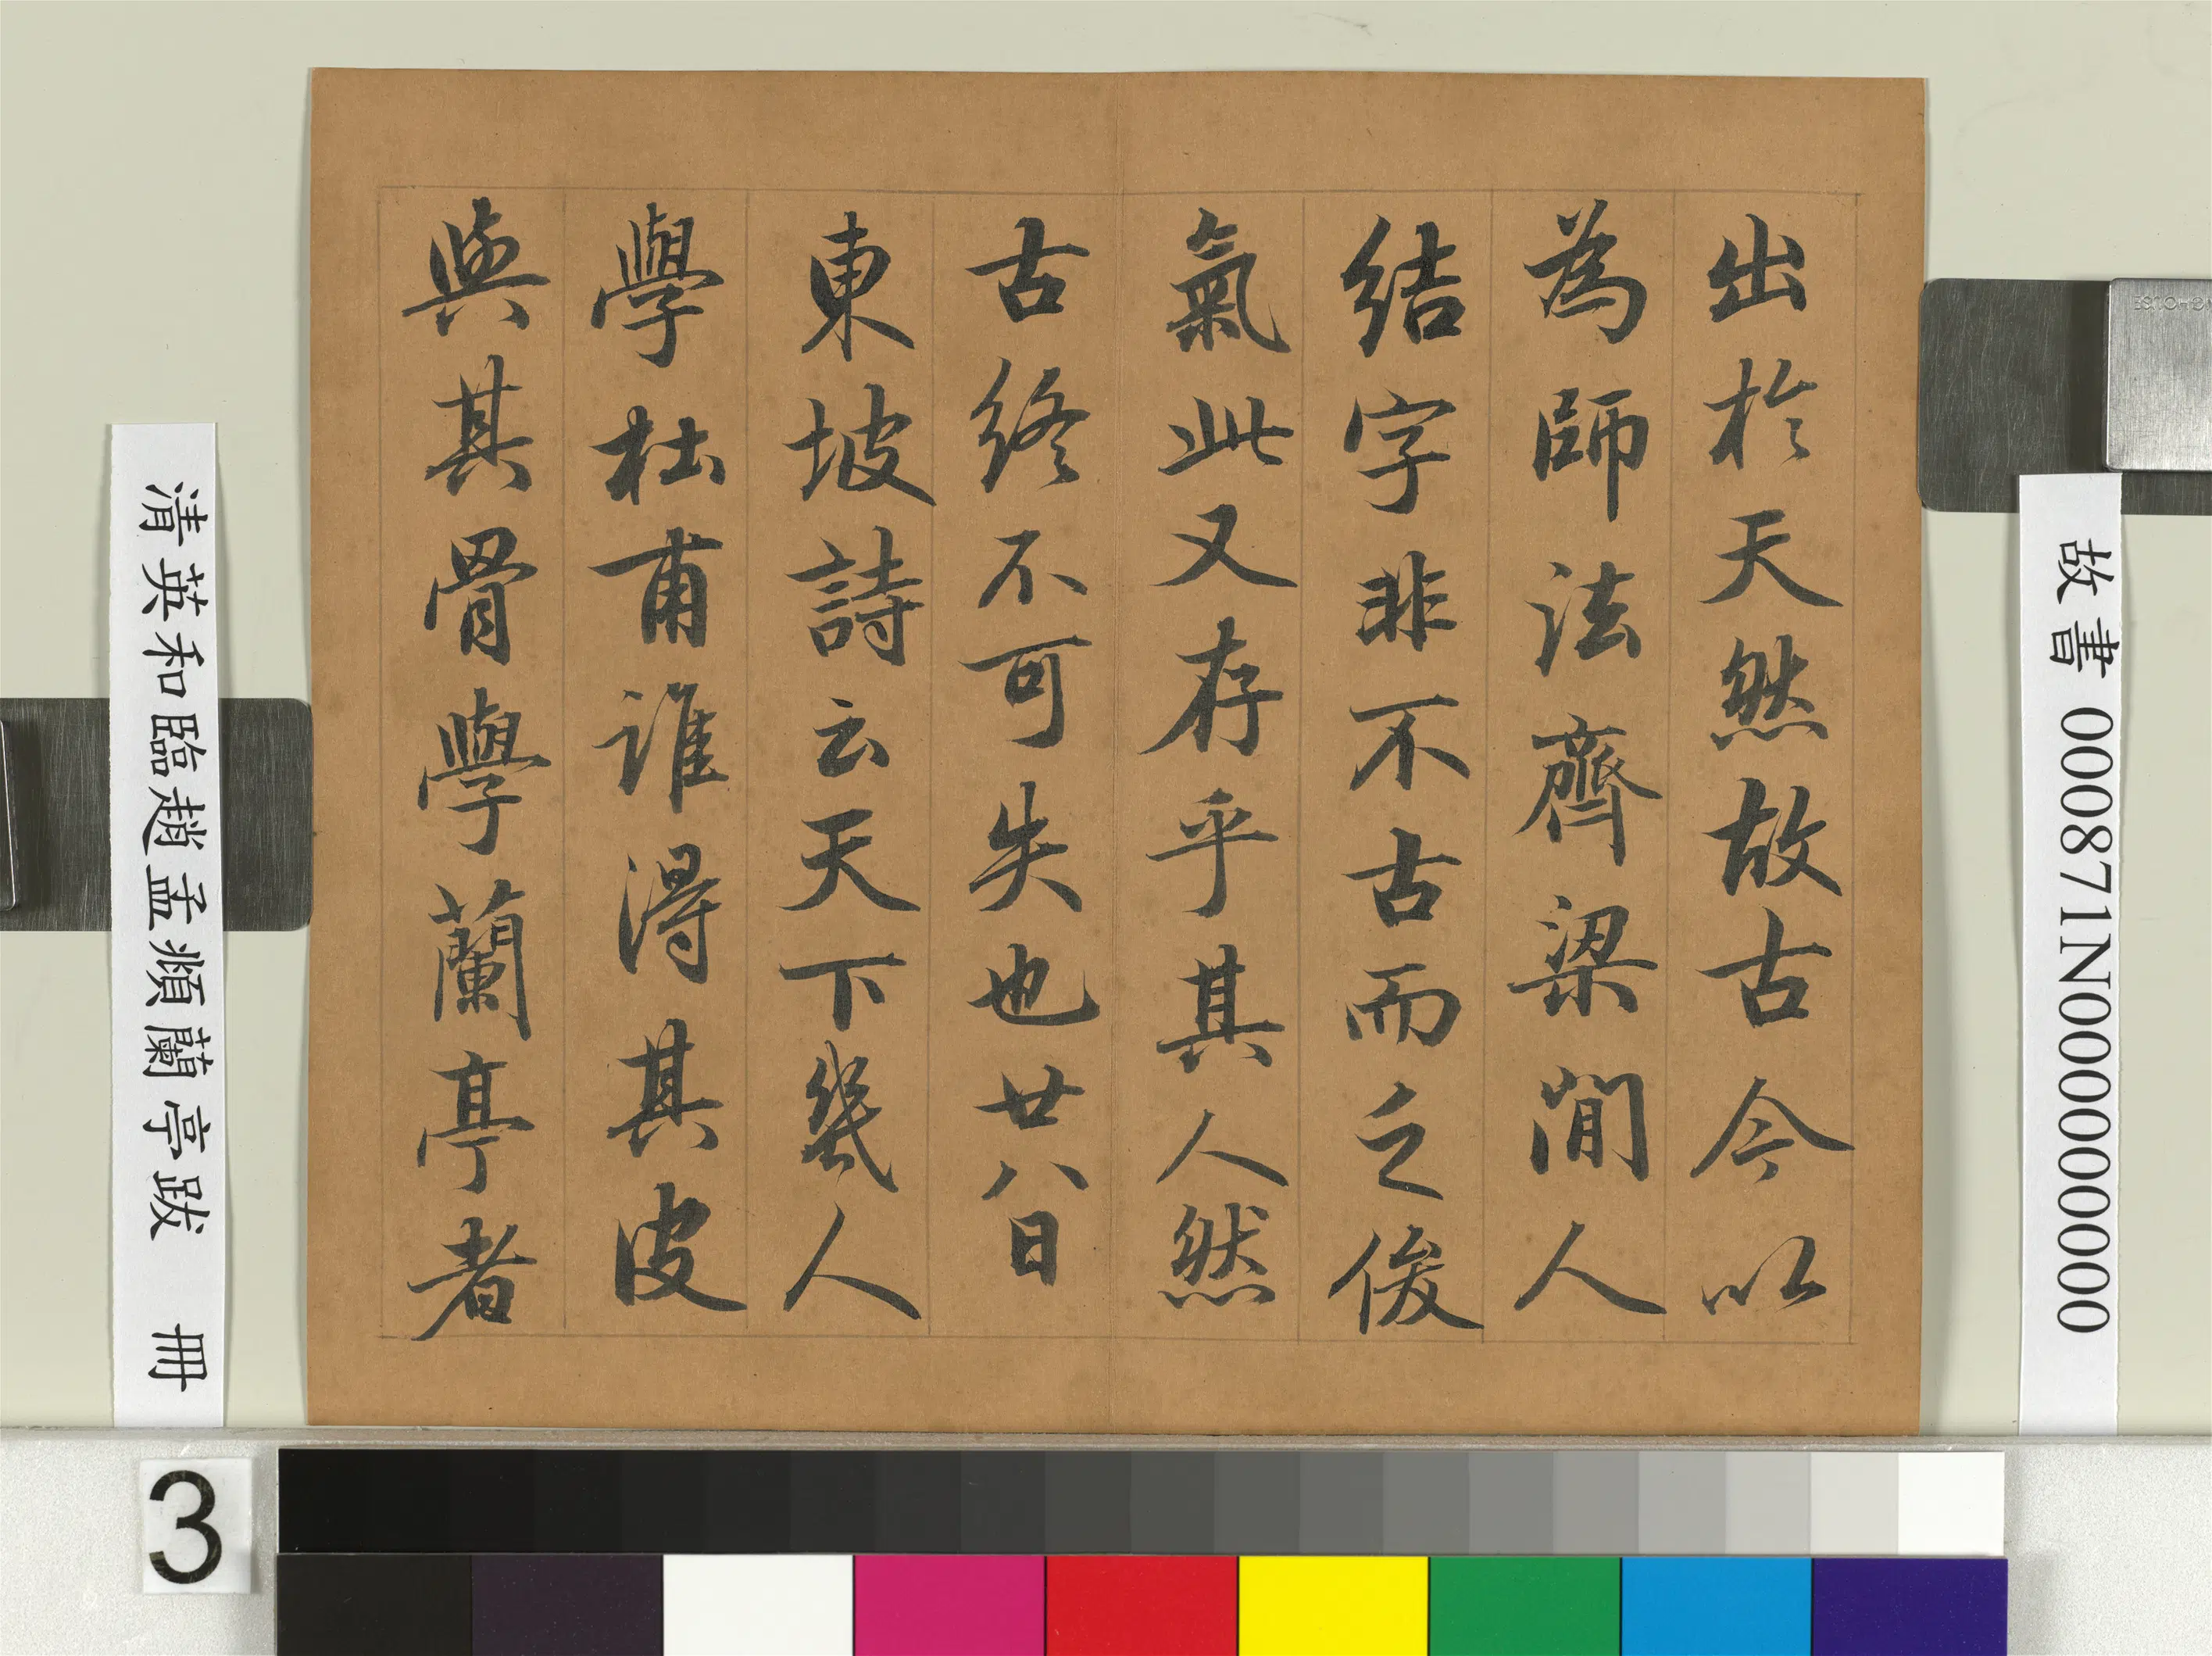 故書 000871N000000000
出於天然故古今以
為師法齊梁間人
結字非不古而乏俊
氣此又存乎其人然
古終不可失也廿八日
東坡詩云天下幾人
學杜甫誰得其皮
與其骨學蘭亭者
清英和臨趙孟頫蘭亭跋 冊
3